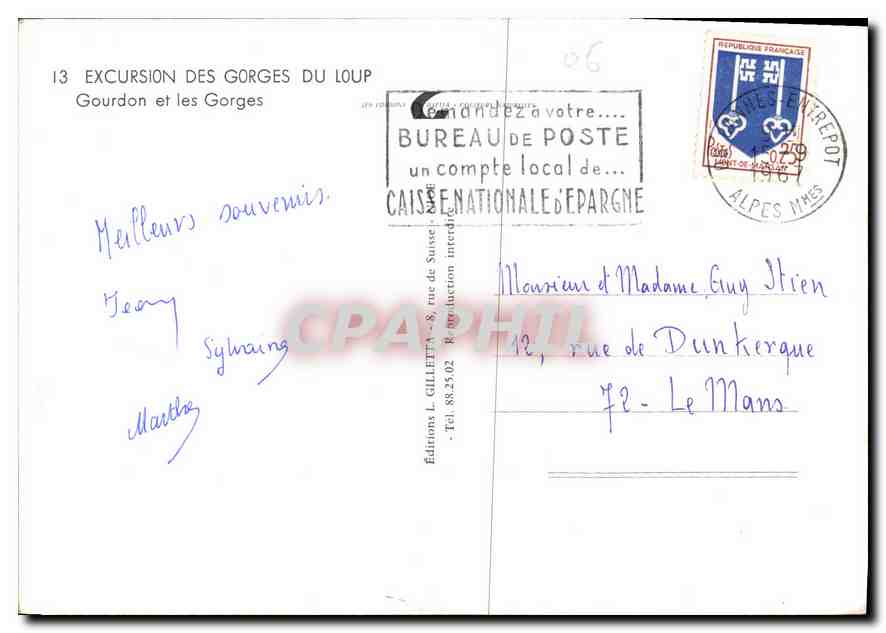 13 EXCURSION DES GORGES DU LOUP
Gourdon et les Gorges
06
Demandez à votre....
BUREAU DE POSTE
un compte local de...
CAISSE NATIONALE D'EPARGNE
REPUBLIQUE FRANÇAISE
0,25
MONT-DE-MARSAN
CANNES-ENTREPOT
1967
ALPES MMES
Meilleurs souvenirs.
Jean
Sylvaine
Marthe
Éditions L. GILLETTA - 8, rue de Suisse - NICE
- Tél. 88.25.02 Reproduction interdite
Monsieur et Madame Guy Itien
12, rue de Dunkerque
72 - Le Mans
CPAPHIL